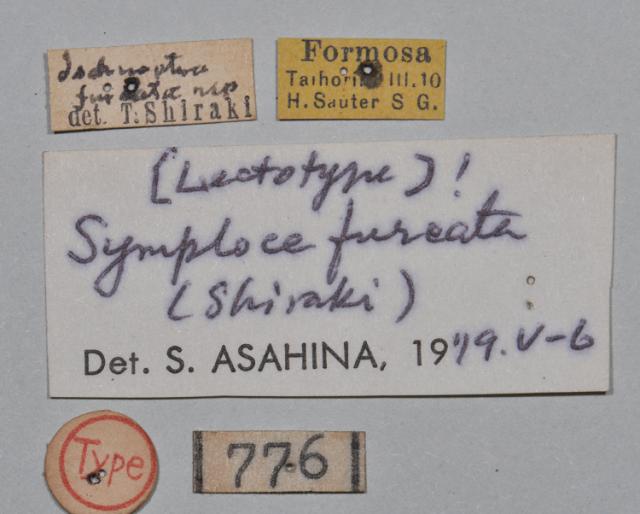 Ischnoptera
furcata nsp
det. T. Shiraki
Formosa
Taihorin III.10
H. Sauter S G.
[Lectotype]!
Symploce furcata
(Shiraki)
Det. S. ASAHINA, 1979.V-6
Type
776